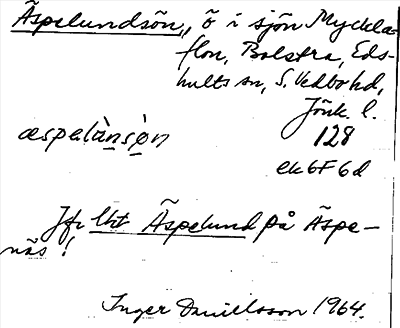 Äspelundsön, ö i sjön Myckla-
flon, Bolstra, Eds-
hults sn, S. Vedbo hd,
Jönk. l.
æspelànsø̣̀n 128
ek 6F 6d
Jfr lht Äspelund på Äspe-
näs!
Inger Danielsson 1964.